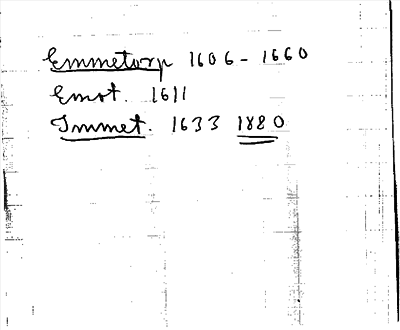 Emmetorp 1606 - 1660
Emot. 1611
Immet. 1633 1880